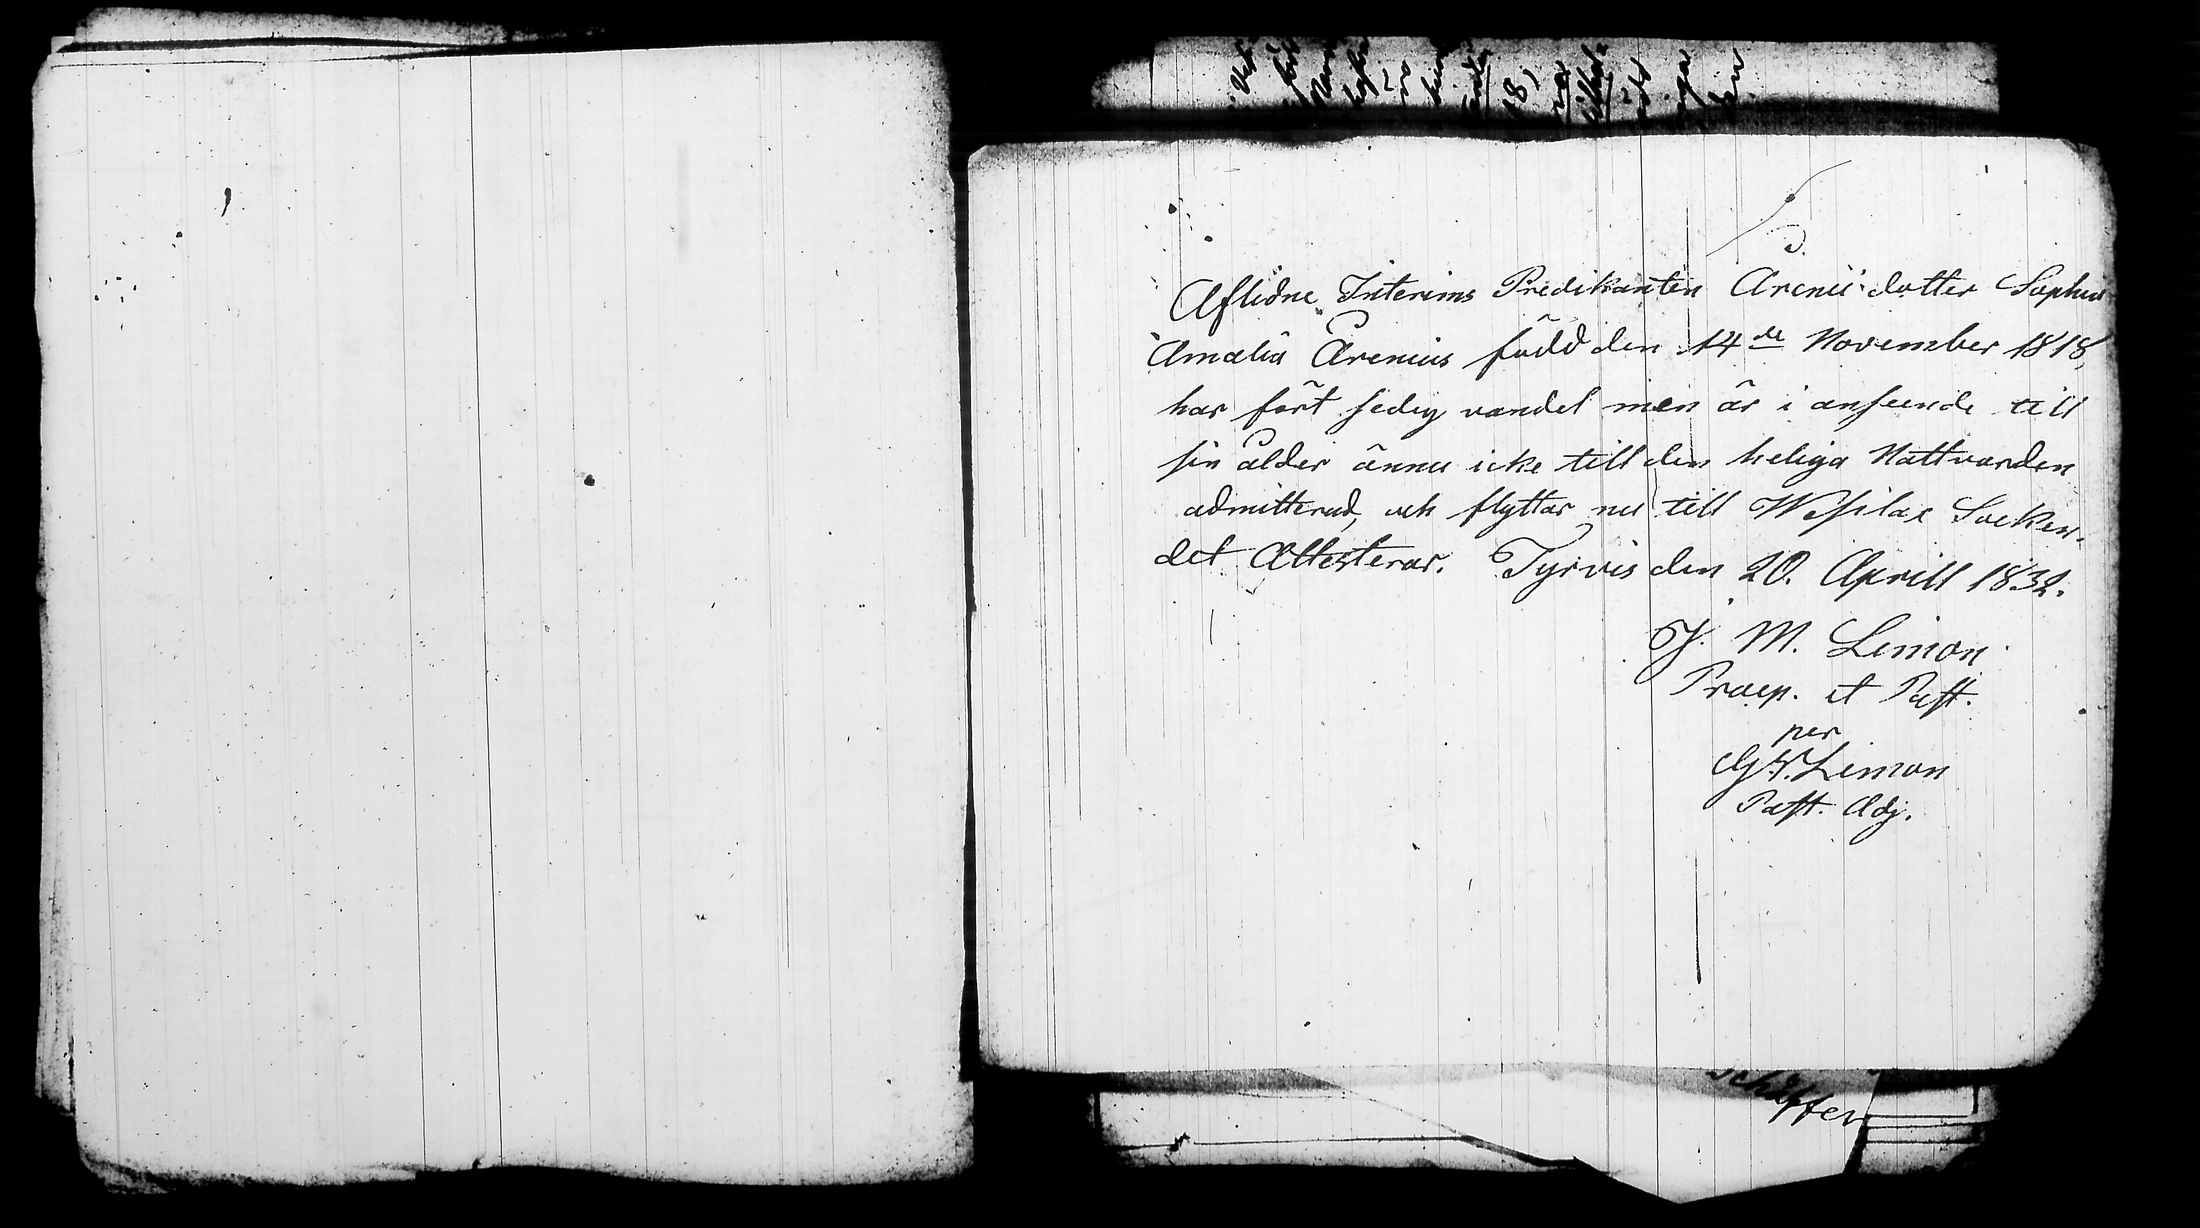 Aflidne Interims Predikanten Arenii dotter Sophia
Amalia Arenius född den 14de November 1818,
har fört sedig vandel men är i anseende till
sin ålder ännu icke till den heliga Nattvarden
admitterad, och flyttar nu till Wesilax Socken.
det Attesterar. Tyrvis den 20. Aprill 1832.
J. M. Limon
Praep. et Past.
per
Limon
Past. Adj.